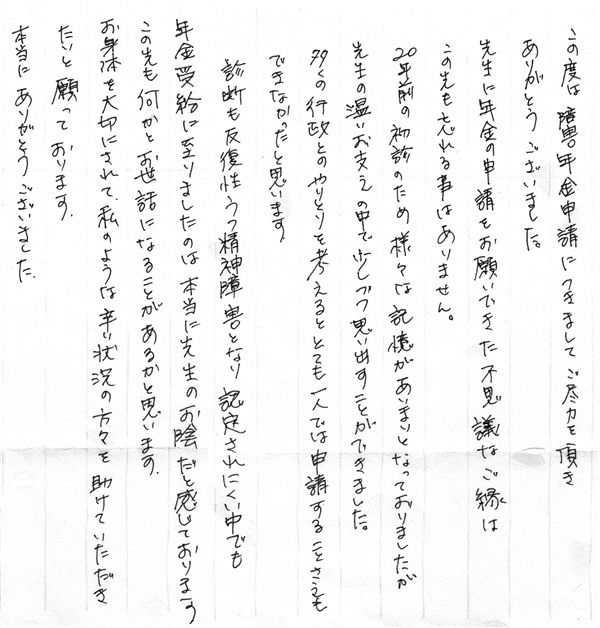 この度は障害年金申請につきましてご尽力を頂き
ありがとうございました。
先生に年金の申請をお願いできた不思議なご縁は
この先も忘れる事はありません。
20年前の初診のため様々な記憶があいまいとなっておりましたが
先生の温いお支えの中で少しづつ思い出すことができました。
多くの行政とのやりとりを考えるととても一人では申請することさえも
できなかったと思います。
診断も反復性うつ精神障害となり認定されにくい中でも
年金受給に至りましたのは本当に先生のお陰だと感じております
この先も何かとお世話になることがあるかと思います。
お身体を大切にされて、私のような辛い状況の方々を助けていただき
たいと願っております。
本当にありがとうございました。